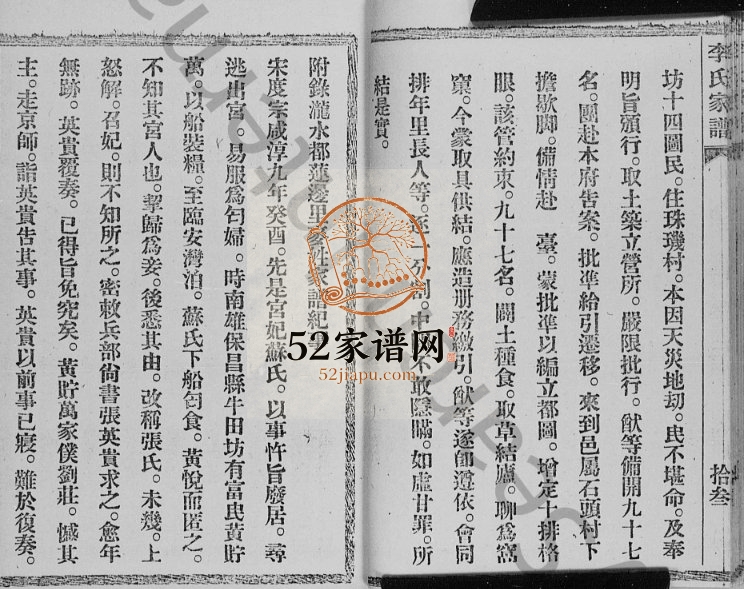 李氏家譜
拾叁
坊十四圖民。住珠璣村。本因天災地劫。民不堪命。及奉
明旨頒行。取土築立營所。嚴限批行。猷等備開九十七
名。團赴本府告案。批準給引遷移。來到邑屬石頭村下
擔歇脚。備情赴 臺。蒙批準以編立都圖。增定十排格
眼。該管約束。九十七名。闢土種食。取草結廬。聊爲窩
窠。今蒙取具供結。應造册務繳引。猷等遂卽遵依。會同
排年里長人等。逐一分割。中 不敢隱瞞。如虛甘罪。所
結是實。
附錄瀧水都蓮邊里 姓家譜紀事
宋度宗咸淳九年癸酉。先是宮妃蘇氏。以事忤旨廢居。尋
逃出宮。易服爲匄婦。時南雄保昌縣牛田坊有富民黃貯
萬。以船裝糧。至臨安灣泊。蘇氏下船匄食。黃悅而匿之。
不知其宮人也。挈歸爲妾。後悉其由。改稱張氏。未幾。上
怒解。召妃。則不知所之。密敕兵部尙書張英貴求之。愈年
無跡。英貴覆奏。已得旨免究矣。黃貯萬家僕劉莊。憾其
主。走京師。詣英貴告其事。英貴以前事已寢。難於復奏。
52家谱网
52jiapu.com